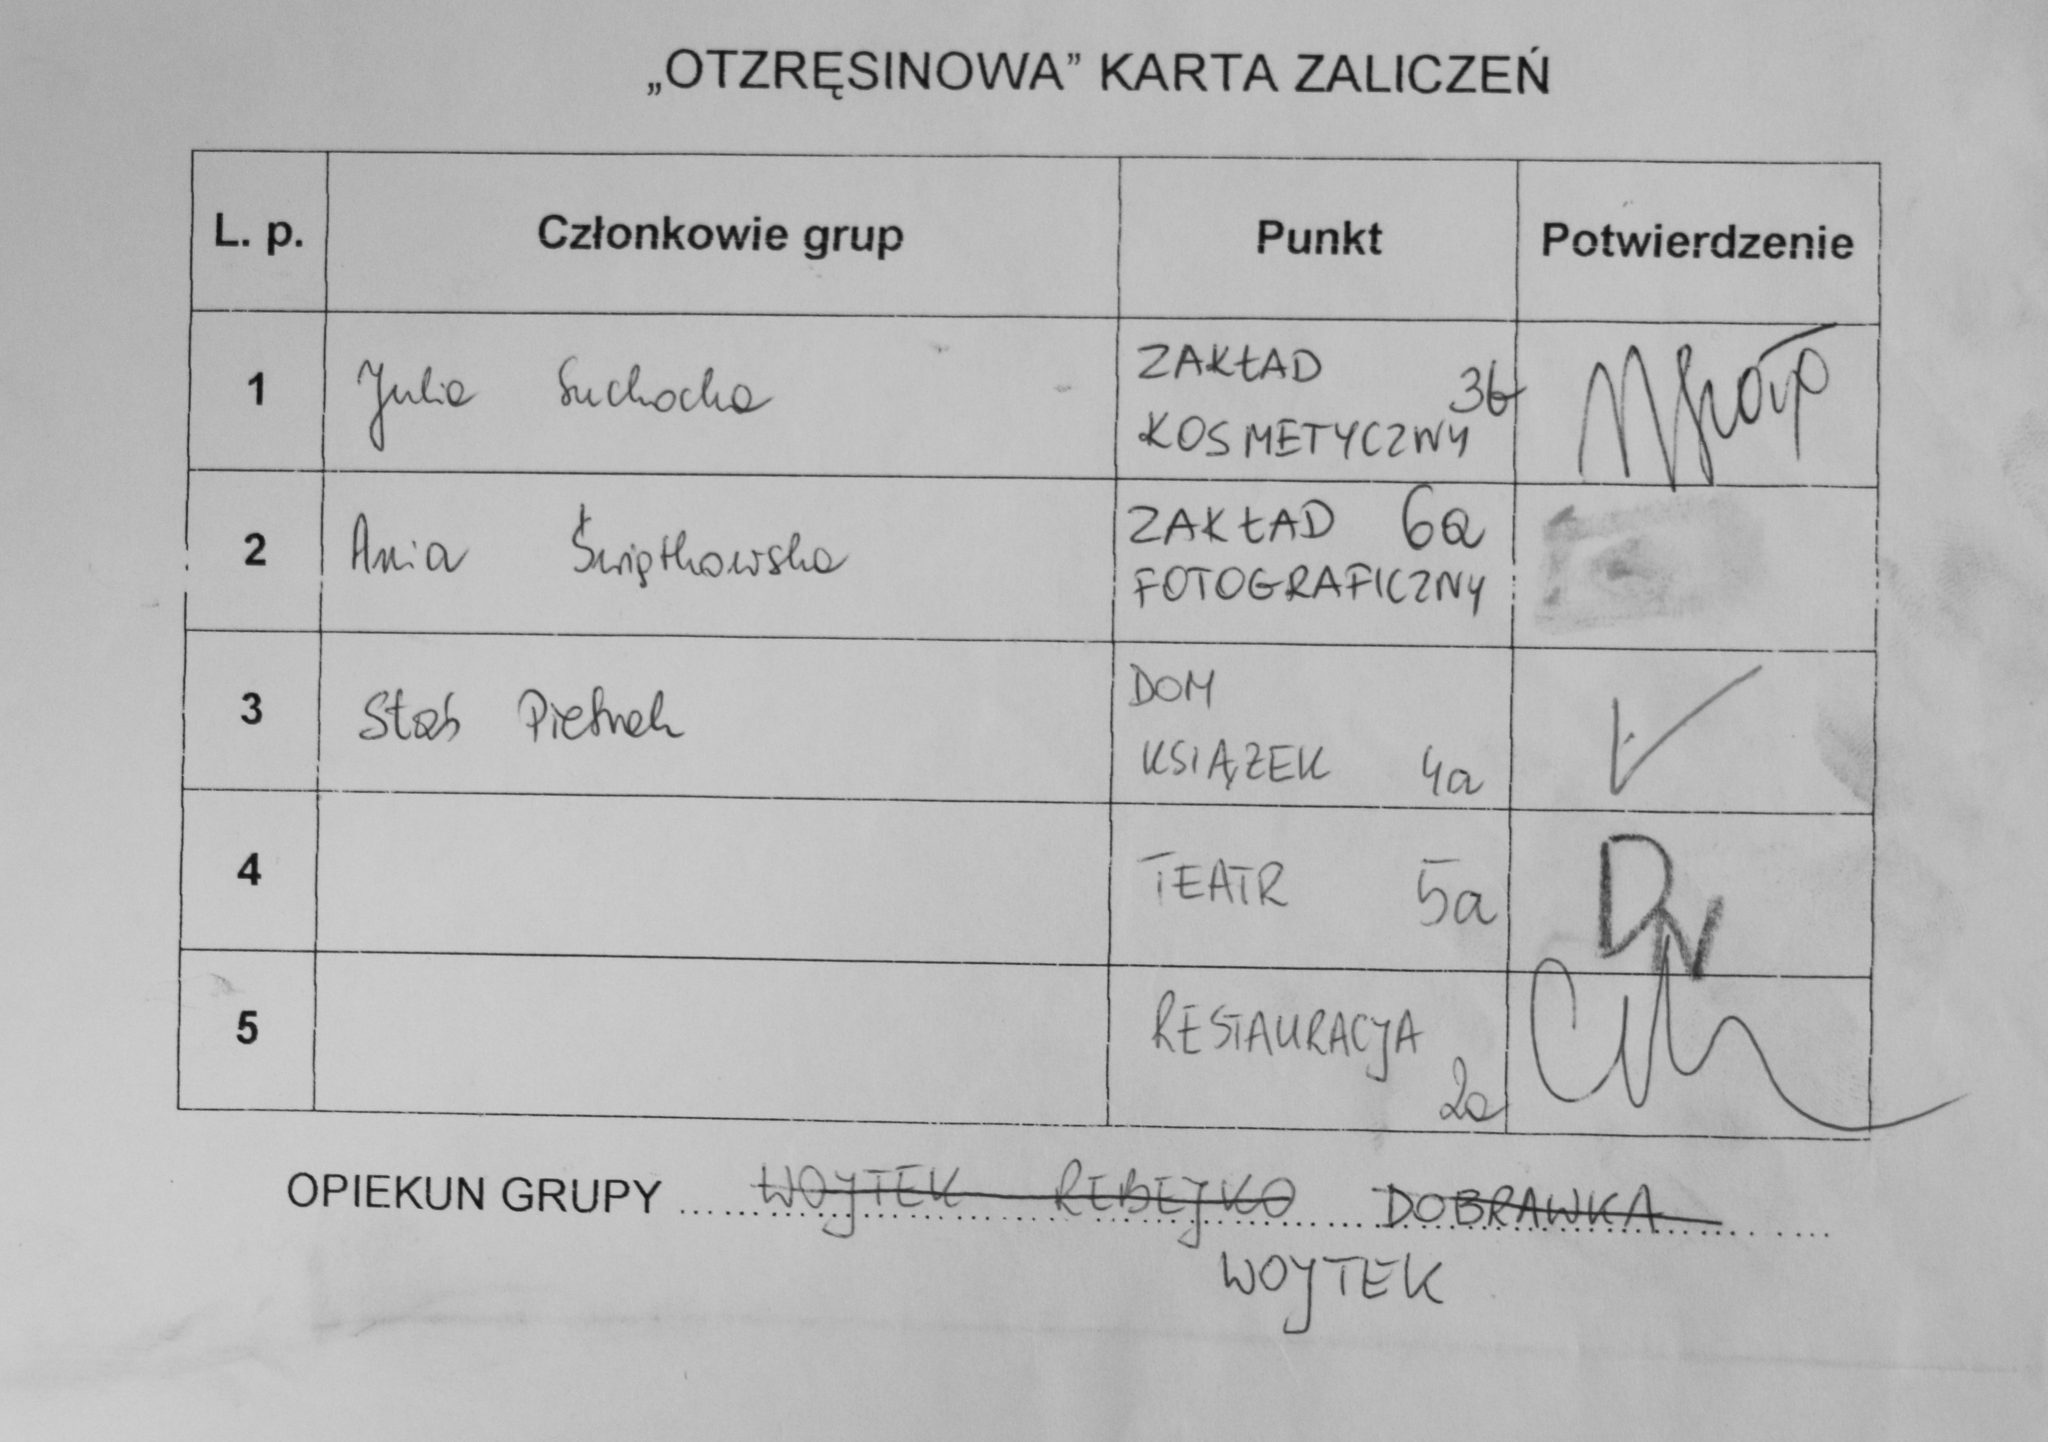 „OTZRĘSINOWA” KARTA ZALICZEŃ
L. p. Członkowie grup Punkt Potwierdzenie
1 Julia Suchocka ZAKŁAD KOSMETYCZNY 3b
2 Ania Świątkowska ZAKŁAD FOTOGRAFICZNY 6a
3 Staś Pietrak DOM KSIĄŻEK 4a
4 TEATR 5a DN
5 RESTAURACJA 2a
OPIEKUN GRUPY WOJTEK REBEJKO DOBRAWKA
WOJTEK